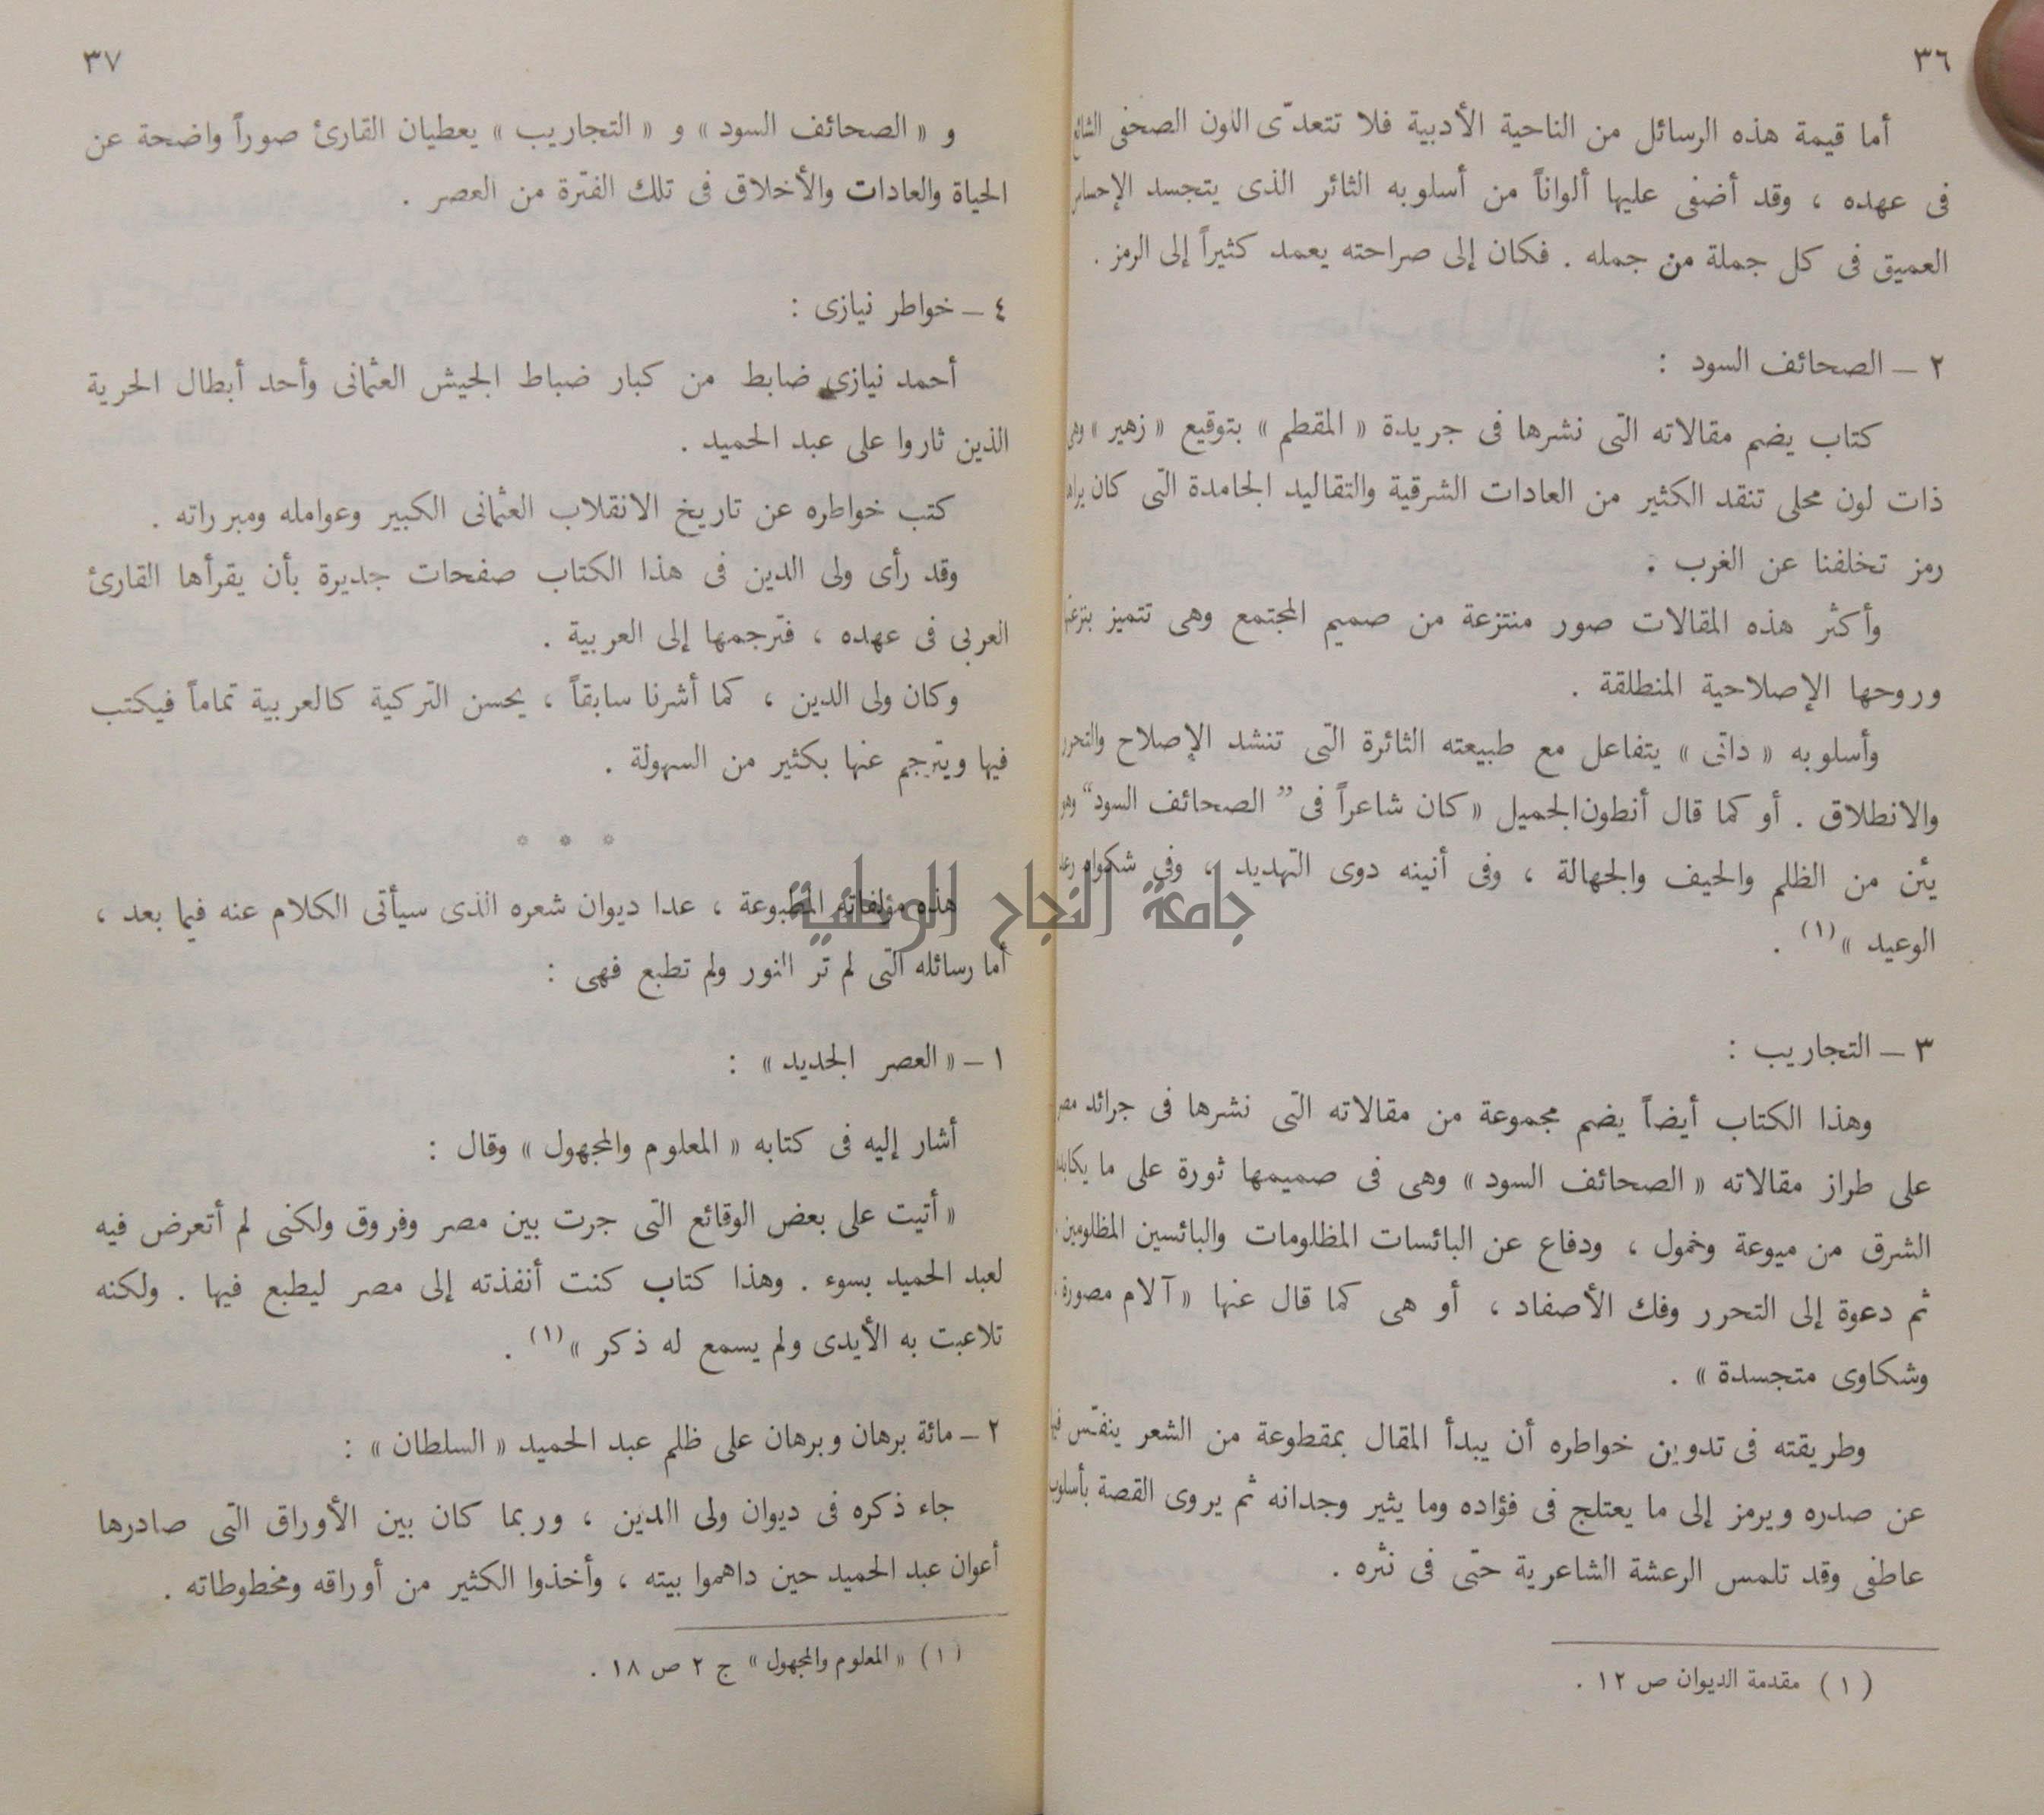 ٣٦
أما قيمة هذه الرسائل من الناحية الأدبية فلا تتعدّى اللون الصحفى الشائع
فى عهده ، وقد أضفى عليها ألواناً من أسلوبه الثائر الذى يتجسد الإحساس
العميق فى كل جملة من جمله . فكان إلى صراحته يعمد كثيراً إلى الرمز .
٢ – الصحائف السود :
كتاب يضم مقالاته التى نشرها فى جريدة « المقطم » بتوقيع « زهير » وهى
ذات لون محلى تنقد الكثير من العادات الشرقية والتقاليد الجامدة التى كان يراها
رمز تخلفنا عن الغرب .
وأكثر هذه المقالات صور منتزعة من صميم المجتمع وهى تتميز بنزعتها
وروحها الإصلاحية المنطلقة .
وأسلوبه « داتى » يتفاعل مع طبيعته الثائرة التى تنشد الإصلاح والتحرر
والانطلاق . أو كما قال أنطون الجميل « كان شاعراً فى ” الصحائف السود “ وهو
يئن من الظلم والحيف والجهالة ، وفى أنينه دوى التهديد ، وفى شكواه رعد
الوعيد » (١) .
٣ – التجاريب :
وهذا الكتاب أيضاً يضم مجموعة من مقالاته التى نشرها فى جرائد مصر
على طراز مقالاته « الصحائف السود » وهى فى صميمها ثورة على ما يكابده
الشرق من ميوعة وخمول ، ودفاع عن البائسات المظلومات والبائسين المظلومين ،
ثم دعوة إلى التحرر وفك الأصفاد ، أو هى كما قال عنها « آلام مصورة ،
وشكاوى متجسدة » .
وطريقته فى تدوين خواطره أن يبدأ المقال بمقطوعة من الشعر ينفّس فيها
عن صدره ويرمز إلى ما يعتلج فى فؤاده وما يثير وجدانه ثم يروى القصة بأسلوب
عاطفى وقد تلمس الرعشة الشاعرية حتى فى نثره .
(١) مقدمة الديوان ص ١٢ .
٣٧
و « الصحائف السود » و « التجاريب » يعطيان القارئ صوراً واضحة عن
الحياة والعادات والأخلاق فى تلك الفترة من العصر .
٤ – خواطر نيازى :
أحمد نيازى ضابط من كبار ضباط الجيش العثمانى وأحد أبطال الحرية
الذين ثاروا على عبد الحميد .
كتب خواطره عن تاريخ الانقلاب العثمانى الكبير وعوامله ومبرراته .
وقد رأى ولى الدين فى هذا الكتاب صفحات جديرة بأن يقرأها القارئ
العربى فى عهده ، فترجمها إلى العربية .
وكان ولى الدين ، كما أشرنا سابقاً ، يحسن التركية كالعربية تماماً فيكتب
فيها ويترجم عنها بكثير من السهولة .
* * *
هذه مؤلفاته المطبوعة ، عدا ديوان شعره الذى سيأتى الكلام عنه فيما بعد ،
أما رسائله التى لم تر النور ولم تطبع فهى :
١ – « العصر الجديد » :
أشار إليه فى كتابه « المعلوم والمجهول » وقال :
« أتيت على بعض الوقائع التى جرت بين مصر وفروق ولكنى لم أتعرض فيه
لعبد الحميد بسوء . وهذا كتاب كنت أنفذته إلى مصر ليطبع فيها . ولكنه
تلاعبت به الأيدى ولم يسمع له ذكر » (١) .
٢ – مائة برهان وبرهان على ظلم عبد الحميد « السلطان » :
جاء ذكره فى ديوان ولى الدين ، وربما كان بين الأوراق التى صادرها
أعوان عبد الحميد حين داهموا بيته ، وأخذوا الكثير من أوراقه ومخطوطاته .
(١) « المعلوم والمجهول » ج ٢ ص ١٨ .
جامعة النجاح الوطنية